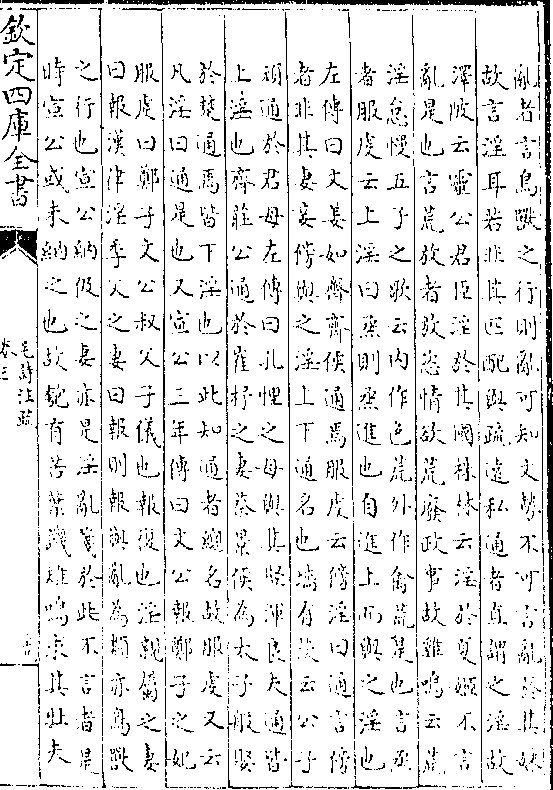 亂者言鳥獸之行則亂可知文勢不可言亂於其妹
故言淫耳若非其匹配與疏遠私通者直謂之淫故
澤陂云靈公君臣淫於其國株林云淫於夏姬不言
亂是也言荒放者放恣情欲荒廢政事故雞鳴云荒
淫怠慢五子之歌云内作色荒外作禽荒是也言烝
者服虔云上淫曰烝則烝進也自進上而與之淫也
左傳曰文姜如齊齊侯通焉服虔云傍淫曰通言傍
者非其妻妾傍與之淫上下通名也墻有茨云公子
頑通於君母左傳曰孔悝之母與其豎渾良夫通皆
上淫也齊莊公通於崔杼之妻蔡景侯為太子般娶
於楚通焉皆下淫也以此知通者總名故服虔又云
凡淫曰通是也又宣公三年傳曰文公報鄭子之妃
服虔曰鄭子文公叔父子儀也報復也淫親屬之妻
曰報漢律淫季父之妻曰報則報與亂為類亦鳥獸
之行也宣公納伋之妻亦是淫亂箋於此不言者是
時宣公或未納之也故匏有苦葉譏雉鳴求其牡夫
欽定四庫全書
毛詩注疏
卷三